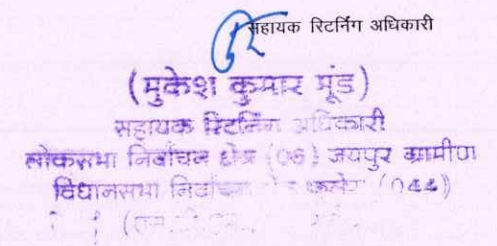 सहायक रिटर्निंग अधिकारी
(मुकेश कुमार मूंड)
सहायक रिटर्निंग अधिकारी
लोकसभा निर्वाचन क्षेत्र (06) जयपुर ग्रामीण
विधानसभा निर्वाचन (044)